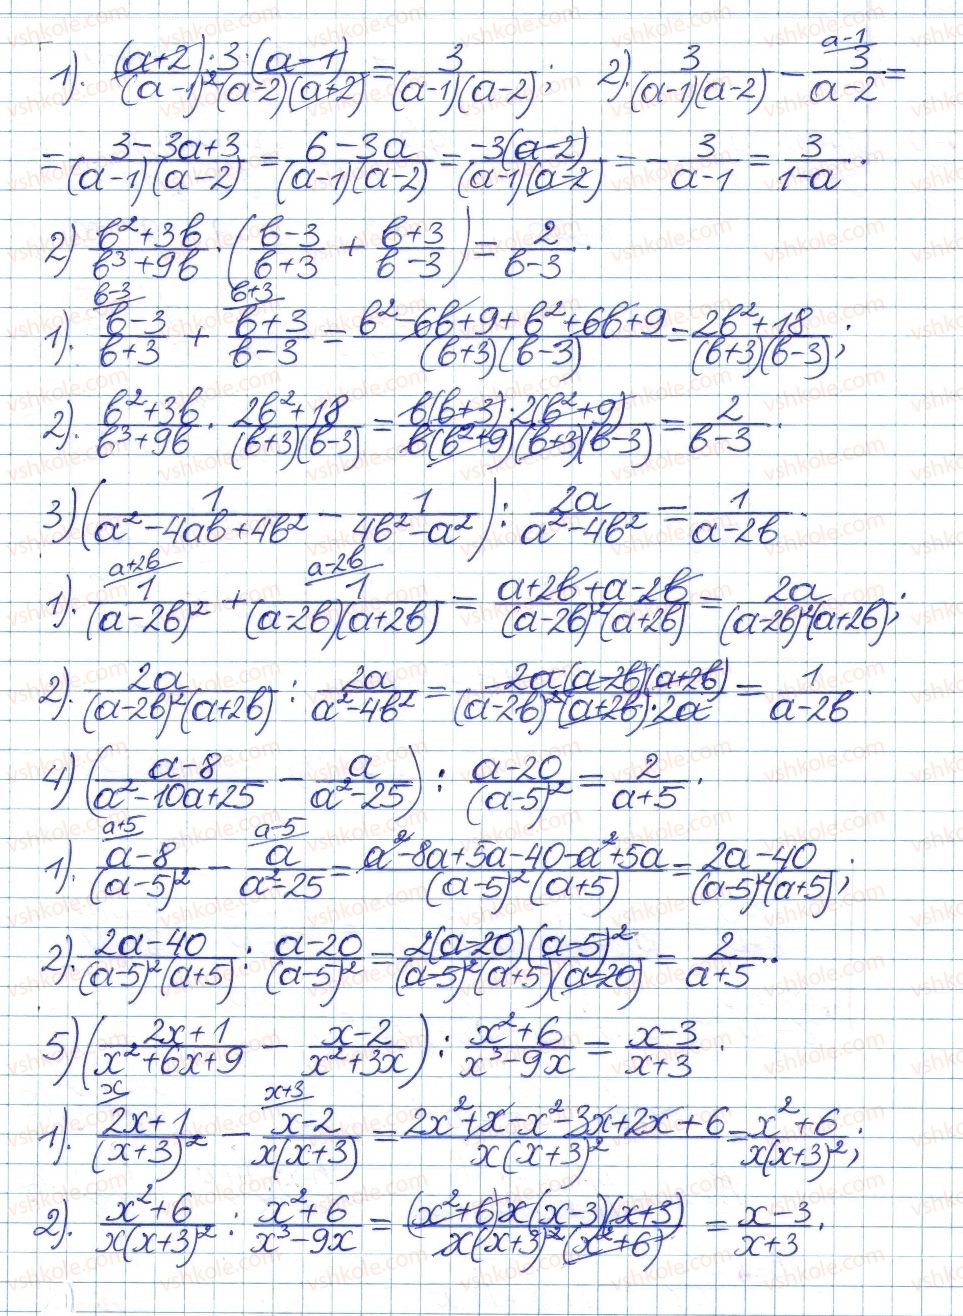 1). ((a+2)·3·(a-1))/((a-1)²(a-2)(a+2)) = 3/((a-1)(a-2)); 2). 3/((a-1)(a-2)) - 3/(a-2) (a-1) =
= (3-3a+3)/((a-1)(a-2)) = (6-3a)/((a-1)(a-2)) = (-3(a-2))/((a-1)(a-2)) = -3/(a-1) = 3/(1-a).
2) (в²+3в)/(в³+9в) · ((в-3)/(в+3) + (в+3)/(в-3)) = 2/(в-3).
1). (в-3)/(в+3) (в-3) + (в+3)/(в-3) (в+3) = (в²-6в+9+в²+6в+9)/((в+3)(в-3)) = (2в²+18)/((в+3)(в-3));
2). (в²+3в)/(в³+9в) · (2в²+18)/((в+3)(в-3)) = (в(в+3)·2(в²+9))/(в(в²+9)(в+3)(в-3)) = 2/(в-3).
3) (1/(a²-4aв+4в²) - 1/(4в²-a²)) : 2a/(a²-4в²) = 1/(a-2в).
1). 1/(a-2в)² (a+2в) + 1/((a-2в)(a+2в)) (a-2в) = (a+2в+a-2в)/((a-2в)²(a+2в)) = 2a/((a-2в)²(a+2в));
2). 2a/((a-2в)²(a+2в)) : 2a/(a²-4в²) = (2a(a-2в)(a+2в))/((a-2в)²(a+2в)·2a) = 1/(a-2в).
4) ((a-8)/(a²-10a+25) - a/(a²-25)) : (a-20)/(a-5)² = 2/(a+5).
1). (a-8)/(a-5)² (a+5) - a/(a²-25) (a-5) = (a²-8a+5a-40-a²+5a)/((a-5)²(a+5)) = (2a-40)/((a-5)²(a+5));
2). (2a-40)/((a-5)²(a+5)) : (a-20)/(a-5)² = (2(a-20)(a-5)²)/((a-5)²(a+5)(a-20)) = 2/(a+5).
5) ((2x+1)/(x²+6x+9) - (x-2)/(x²+3x)) : (x²+6)/(x³-9x) = (x-3)/(x+3).
1). (2x+1)/(x+3)² (x) - (x-2)/(x(x+3)) (x+3) = (2x²+x-x²-3x+2x+6)/(x(x+3)²) = (x²+6)/(x(x+3)²);
2). (x²+6)/(x(x+3)²) : (x²+6)/(x³-9x) = ((x²+6)x(x-3)(x+3))/(x(x+3)²(x²+6)) = (x-3)/(x+3).
vshkole.com